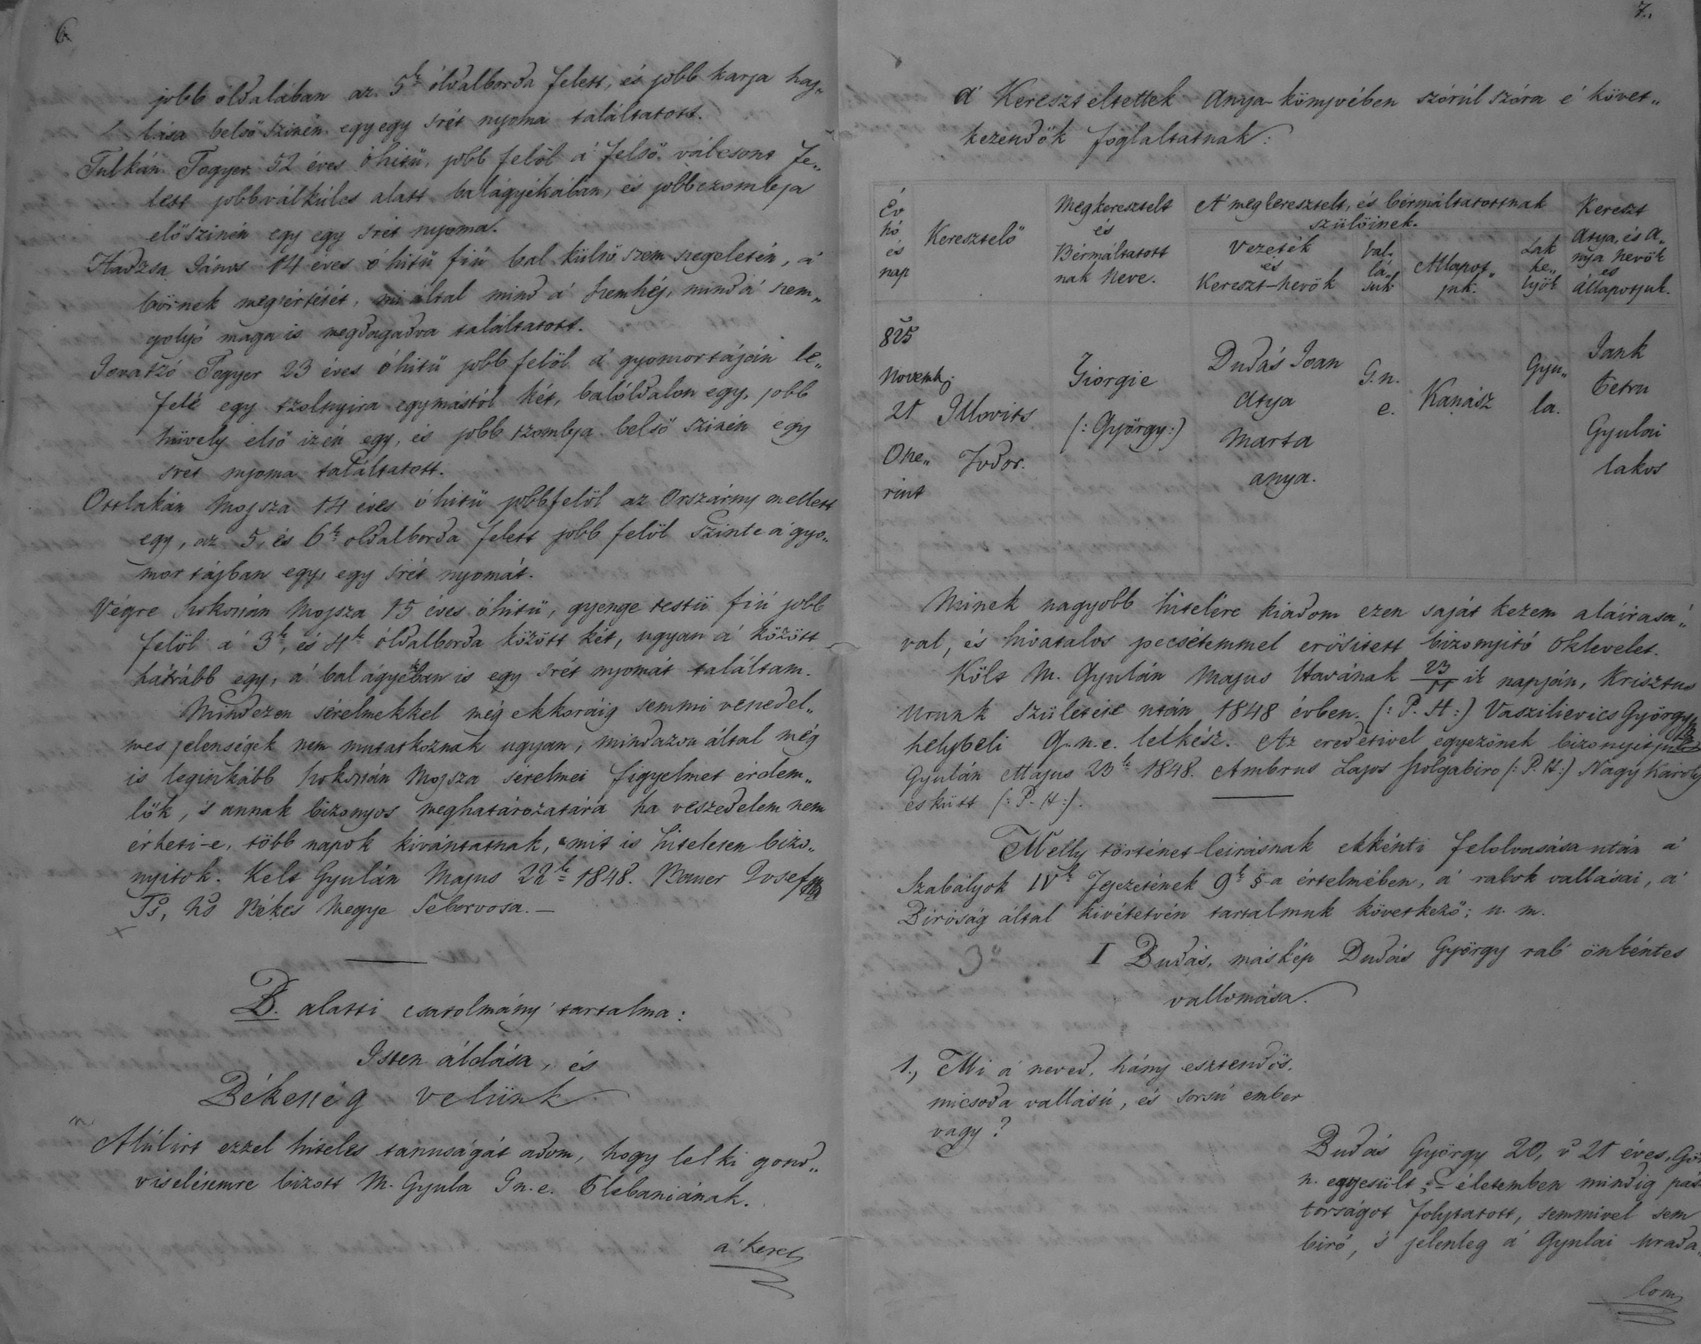 6.
jobb oldalában az 5k oldalborda felett, és jobb karja haj„
lása belső szinén egy egy srét nyoma találtatott.
Tulkán Togyer 52 éves óhitű, jobb felöl á felső válcsont fe„
lett jobb válkülcs alatt balágyékában, és jobbczombja
előszinén egy egy srét nyoma.
Hadzsa János 14 éves óhitű fiú bal külső szem szegeletén, á
bőrnek megsértését, mi által mind á szemhéj, mind á szem„
golyó maga is megdagadva találtatott.
Togyer 23 éves óhitű jobb felöl á gyomortáján le„
felé egy tzolnyira egymástól két, balóldalon egy, jobb
hüvely első izén egy, és jobb tzombja belső szinén egy
srét nyoma találtatott.
Ottlakán Mojsza 14 éves óhitű jobbfelöl az Orszárny mellett
egy, az 5, és 6k oldalborda felett jobb felöl szinte á gyo„
mor tájban egy, egy srét nyomát.
Végre Mojsza 15 éves óhitű, gyenge testü fiú jobb
felöl á 3k, és 4k oldalborda között két, ugyan á között
hátrább egy, á bal ágyékban is egy srét nyomát találtam.
Mindezen sérelmekkel még ekkoráig semmi veszedel„
mes jelenségek nem mutatkoznak ugyan, mindazon által még
is leginkább Mojsza sérelmei figyelmet érdem„
lők, s annak bizonyos meghatározatára ha veszedelem nem
érheti-e, több napok kivántatnak, mit is hitelesen bizo„
nyitok. Kelt Gyulán Majus 22k 1848. Josef
Ts, Ns Békés Megye Seborvosa. —
B. alatti csatolmány tartalma:
Isten áldása, és
Békesség velünk.
Alúlirt ezzel hiteles tanuságát adom, hogy lelki gond„
viselésemre bizott M. Gyula G n. e. Plebaniának.
á Keresz
7.
á Kereszteltettek Anya-könyvében szórúl szóra é követ„
kezendők foglaltatnak:
Év
hó
és
nap
Keresztelő
Megkeresztelt
és
Bérmáltatott
nak neve.
A' megkeresztelt, és bérmáltatottnak
szülöinek.
Vezeték
és
Kereszt-nevök
Val-
lá-
suk
Állapot„
juk.
Lak
he„
lyök
Kereszt
Atya, és A„
nya nevök
és
állapotjuk.
825
Novemb.
21
Ohe„
rint
Illovits
Todor.
Giorgie
(: György :)
Dudás Ioan
atya
Marta
anya.
G. n.
e.
Kanász
Gyu„
la.
Iank
Petru
Gyulai
lakos
Minek nagyobb hitelére kiadom ezen saját kezem aláirasá„
val, és hivatalos pecsétemmel erősitett bizonyitó oklevelet.
Költ M. Gyulán Majus Havának 23/11 ik napján, Krisztus
Urunk születése után 1848 évben. (: P. H :) Vaszilievics György
helybeli G. n. e. lelkész. Az eredetivel egyezőnek bizonyitjuk
Gyulán Majus 23k 1848. Ambrus Lajos szolgabiró (: P. H :) Nagy Károly
eskütt (: P. H :).
Melly történet leirásnak ekkénti felolvasása után á
Szabályok IVk Fejezetének 9k §-a értelmében, á rabok vallásai, á
Biróság által kivétetvén tartalmuk következő; u. m.
I Budás, máskép Dudás György rab önkéntes
vallomása.
1., Mi á neved, hány esztendős,
micsoda vallású, és sorsú ember
vagy?
Budás György 20, v 21 éves, Gö
n. egyesült, életemben mindig pász
torságot folytatott, semmivel sem
biró, s jelenleg á Gyulai urada„
lom